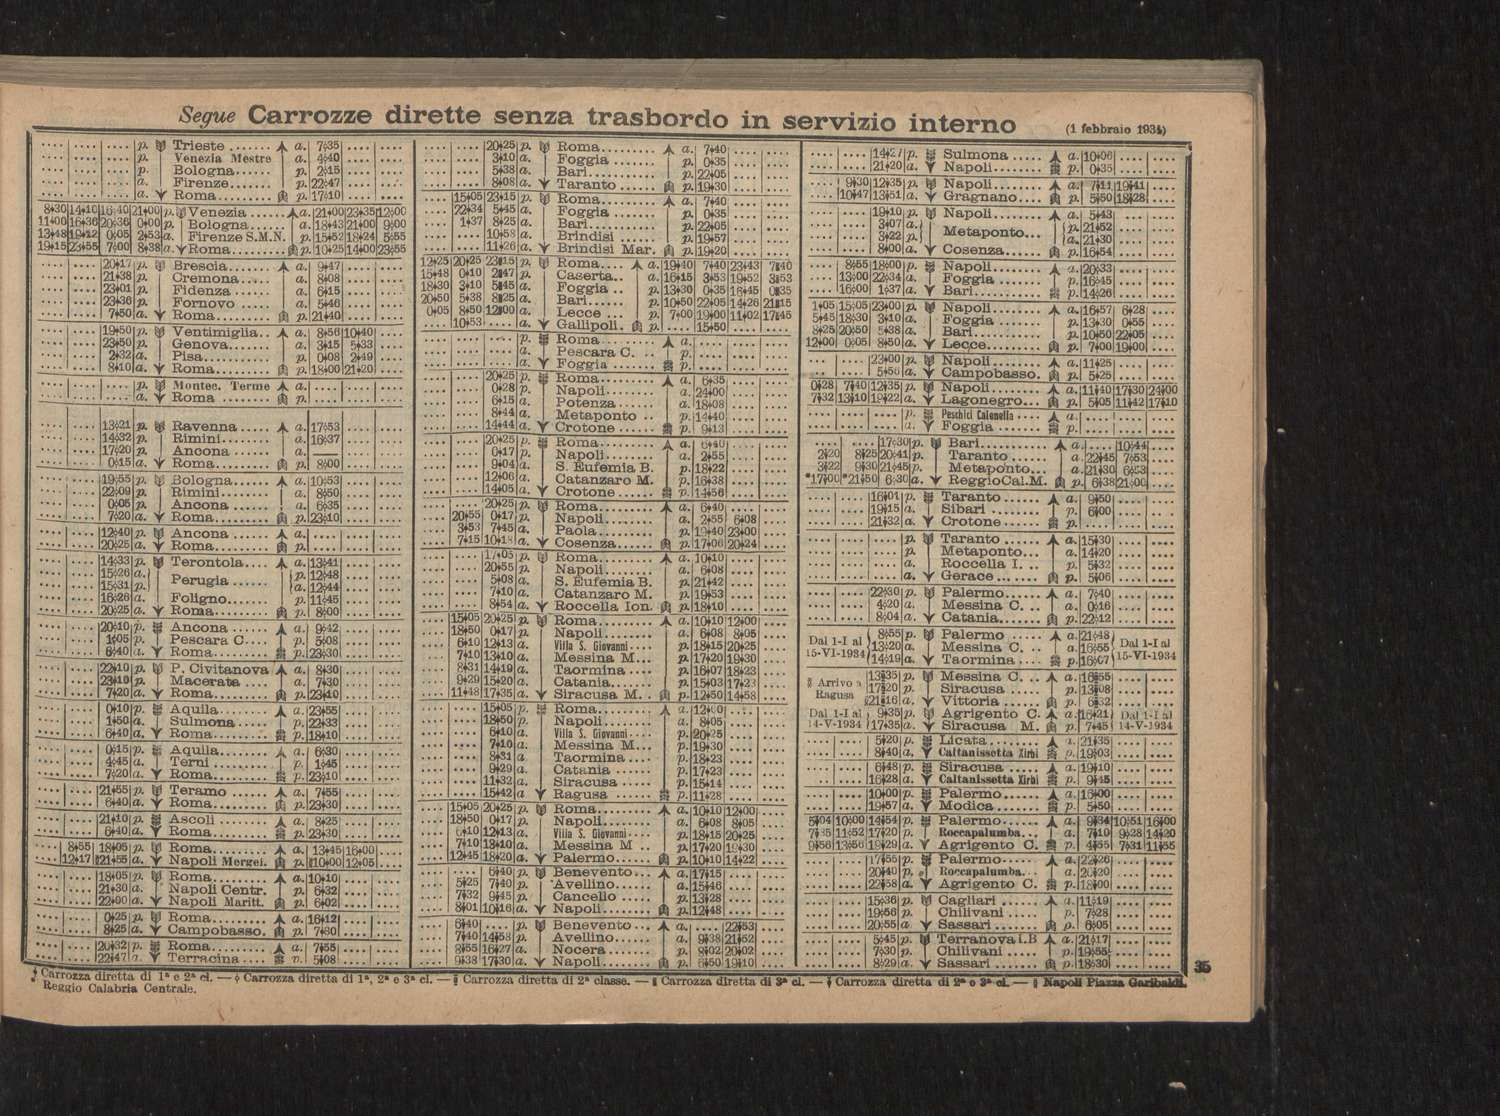 Segue Carrozze dirette senza trasbordo in servizio interno (1 febbraio 1934)
p. Trieste a. 7 35
p. Venezia Mestre a. 4 40
p. Bologna p. 2 15
a. Firenze p. 22 47
a. Roma p. 17 10
8 30 14 10 16 40 21 00 p. Venezia a. 21 00 23 35 12 00
11 00 16 36 20 36 0 00 p. Bologna a. 18 43 21 00 9 00
13 48 19 12 0 05 2 53 a. Firenze S.M.N. p. 15 52 18 24 5 55
19 15 23 55 7 00 8 38 a. Roma p. 10 25 14 00 23 55
20 17 p. Brescia a. 9 47
21 38 p. Cremona a. 8 08
23 01 p. Fidenza a. 6 15
23 36 p. Fornovo a. 5 46
7 50 a. Roma p. 21 40
19 50 p. Ventimiglia a. 8 56 10 40
23 50 p. Genova a. 3 15 5 33
2 32 a. Pisa p. 0 08 2 49
8 10 a. Roma p. 18 00 21 20
p. Montec. Terme a.
a. Roma p.
13 21 p. Ravenna a. 17 53
14 32 p. Rimini a. 16 37
17 20 p. Ancona a. —
0 15 a. Roma p. 8 00
19 55 p. Bologna a. 10 53
22 09 p. Rimini a. 8 50
0 05 p. Ancona a. 6 35
7 20 a. Roma p. 23 10
12 40 p. Ancona a.
20 25 a. Roma p.
14 33 p. Terontola a. 13 41
15 26 a. Perugia p. 12 48
15 31 p. a. 12 44
16 26 a. Foligno p. 11 45
20 25 a. Roma p. 8 00
20 10 p. Ancona a. 9 42
1 05 p. Pescara C. p. 5 08
6 40 a. Roma p. 23 30
22 10 p. P. Civitanova a. 8 30
23 10 p. Macerata a. 7 30
7 20 a. Roma p. 23 10
0 10 p. Aquila a. 23 55
1 50 a. Sulmona p. 22 33
6 40 a. Roma p. 18 10
0 15 p. Aquila a. 6 30
4 45 a. Terni p. 1 45
7 20 a. Roma p. 23 10
21 55 p. Teramo a. 7 55
6 40 a. Roma p. 23 30
21 10 p. Ascoli a. 8 25
6 40 a. Roma p. 23 30
8 55 18 05 p. Roma a. 13 45 16 00
12 17 21 55 a. Napoli Mergel. p. 10 00 12 05
18 05 p. Roma a. 10 10
21 30 a. Napoli Centr. p. 6 32
22 00 a. Napoli Maritt. p. 6 02
0 25 p. Roma a. 16 12
8 25 a. Campobasso p. 7 30
20 32 p. Roma a. 7 55
22 47 a. Terracina p. 5 08
20 25 p. Roma a. 7 40
3 10 a. Foggia p. 0 35
5 38 a. Bari p. 22 05
8 08 a. Taranto p. 19 30
15 05 23 15 p. Roma a. 7 40
22 34 5 45 a. Foggia p. 0 35
1 37 8 25 a. Bari p. 22 05
10 58 a. Brindisi p. 19 57
11 26 a. Brindisi Mar. p. 19 20
12 25 20 25 23 15 p. Roma a. 19 40 7 40 23 43 7 40
15 48 0 10 2 47 p. Caserta a. 16 15 3 53 19 52 3 53
18 30 3 10 5 45 a. Foggia p. 13 30 0 35 16 45 0 35
20 50 5 38 8 25 a. Bari p. 10 50 22 05 14 26 21 15
0 05 8 50 12 00 a. Lecce p. 7 00 19 00 11 02 17 45
10 53 a. Gallipoli p. 15 50
p. Roma a.
a. Pescara C. p.
a. Foggia p.
20 25 p. Roma a. 6 35
0 28 p. Napoli a. 24 00
6 15 a. Potenza p. 18 08
8 44 a. Metaponto p. 14 40
14 44 a. Crotone p. 9 13
20 25 p. Roma a. 6 40
0 17 p. Napoli a. 2 55
9 04 a. S. Eufemia B. p. 18 22
12 06 a. Catanzaro M. p. 16 38
14 05 a. Crotone p. 14 56
20 25 p. Roma a. 6 40
20 55 0 17 p. Napoli a. 2 55 6 08
3 53 7 45 a. Paola p. 19 40 23 00
7 15 10 18 a. Cosenza p. 17 06 20 24
17 05 p. Roma a. 10 10
20 55 p. Napoli a. 6 08
5 08 a. S. Eufemia B. p. 21 42
7 10 a. Catanzaro M. p. 19 53
8 54 a. Roccella Ion. p. 18 10
15 05 20 25 p. Roma a. 10 10 12 00
18 50 0 17 p. Napoli a. 6 08 8 05
6 10 12 13 a. Villa S. Giovanni p. 18 15 20 25
7 10 13 10 a. Messina M. p. 17 20 19 30
8 31 14 19 a. Taormina p. 16 07 18 23
9 29 15 20 a. Catania p. 15 03 17 23
11 48 17 35 a. Siracusa M. p. 12 50 14 58
15 05 p. Roma a. 12 00
18 50 p. Napoli a. 8 05
6 10 a. Villa S. Giovanni p. 20 25
7 10 a. Messina M. p. 19 30
8 31 a. Taormina p. 18 23
9 29 a. Catania p. 17 23
11 32 a. Siracusa p. 15 14
15 42 a. Ragusa p. 11 28
15 05 20 25 p. Roma a. 10 10 12 00
18 50 0 17 p. Napoli a. 6 08 8 05
6 10 12 13 a. Villa S. Giovanni p. 18 15 20 25
7 10 13 10 a. Messina M p. 17 20 19 30
12 45 18 20 a. Palermo p. 10 10 14 22
6 40 p. Benevento a. 17 15
5 25 7 40 p. Avellino a. 15 46
7 32 9 45 p. Cancello p. 13 28
8 01 10 16 a. Napoli p. 12 48
6 40 p. Benevento a. 22 53
7 40 14 58 p. Avellino a. 9 38 21 52
8 55 16 27 a. Nocera p. 9 02 20 02
9 38 17 30 a. Napoli p. 6 50 19 10
14 27 p. Sulmona a. 10 06
21 20 a. Napoli p. 0 35
9 30 12 35 p. Napoli a. 7 11 19 41
10 47 13 51 a. Gragnano p. 5 50 18 28
19 10 p. Napoli a. 5 43
3 07 a. Metaponto p. 21 52
3 22 p. a. 21 30
8 00 a. Cosenza p. 16 54
8 55 18 00 p. Napoli a. 20 33
13 00 22 34 a. Foggia p. 16 45
16 00 1 37 a. Bari p. 14 26
1 05 15 05 23 00 p. Napoli a. 16 57 6 28
5 45 18 30 3 10 a. Foggia p. 13 30 0 55
8 25 20 50 5 38 a. Bari p. 10 50 22 05
12 00 0 05 8 50 a. Lecce p. 7 00 19 00
23 00 p. Napoli a. 11 25
5 56 a. Campobasso p. 5 25
0 28 7 40 12 35 p. Napoli a. 11 40 17 30 24 00
7 32 13 10 19 22 a. Lagonegro p. 5 05 11 42 17 10
p. Peschici Calenella a.
a. Foggia p.
17 30 p. Bari a. 10 44
2 20 8 25 20 41 p. Taranto a. 22 45 7 53
3 22 9 30 21 45 p. Metaponto a. 21 30 6 53
*17 00 *21 50 6 30 a. Reggio Cal. M. p. 6 38 21 00
16 01 p. Taranto a. 9 50
19 15 a. Sibari p. 6 00
21 32 a. Crotone p.
p. Taranto a. 15 30
p. Metaponto a. 14 20
a. Roccella I. p. 5 32
a. Gerace p. 5 06
22 30 p. Palermo a. 7 40
4 20 a. Messina C. a. 0 16
8 04 a. Catania p. 22 12
Dal 1-I al 15-VI-1934 8 55 p. Palermo a. 21 48 Dal 1-I al 15-VI-1934
13 20 a. Messina C. a. 16 55
14 19 a. Taormina p. 16 07
Arrivo a Ragusa 13 35 p. Messina C. a. 16 55
17 20 p. Siracusa p. 13 08
21 16 a. Vittoria p. 6 32
Dal 1-I al 14-V-1934 9 35 p. Agrigento C. a. 16 21 Dal 1-I al 14-V-1934
17 35 a. Siracusa M. p. 7 45
5 20 p. Licata a. 21 35
8 40 a. Caltanissetta Xirbi p. 19 03
6 48 p. Siracusa a. 19 10
16 28 a. Caltanissetta Xirbi p. 9 45
10 00 p. Palermo a. 16 00
19 57 a. Modica p. 5 50
5 04 10 00 14 54 p. Palermo a. 9 34 10 51 16 00
7 35 11 52 17 20 p. Roccapalumba a. 7 10 9 28 14 20
9 56 13 56 19 29 a. Agrigento C. p. 4 55 7 31 11 55
17 55 p. Palermo a. 22 26
20 40 p. Roccapalumba a. 20 20
22 58 a. Agrigento C. p. 18 00
15 36 p. Cagliari a. 11 19
19 56 p. Chilivani p. 7 28
20 55 a. Sassari p. 6 05
5 45 p. Terranova I.B a. 21 17
7 30 p. Chilivani p. 19 55
8 29 a. Sassari p. 18 30
35
Carrozza diretta di 1ª e 2ª cl. — Carrozza diretta di 1ª, 2ª e 3ª cl. — Carrozza diretta di 2ª classe. — Carrozza diretta di 3ª cl. — Carrozza diretta di 2ª e 3ª cl. — Napoli Piazza Garibaldi.
Reggio Calabria Centrale.